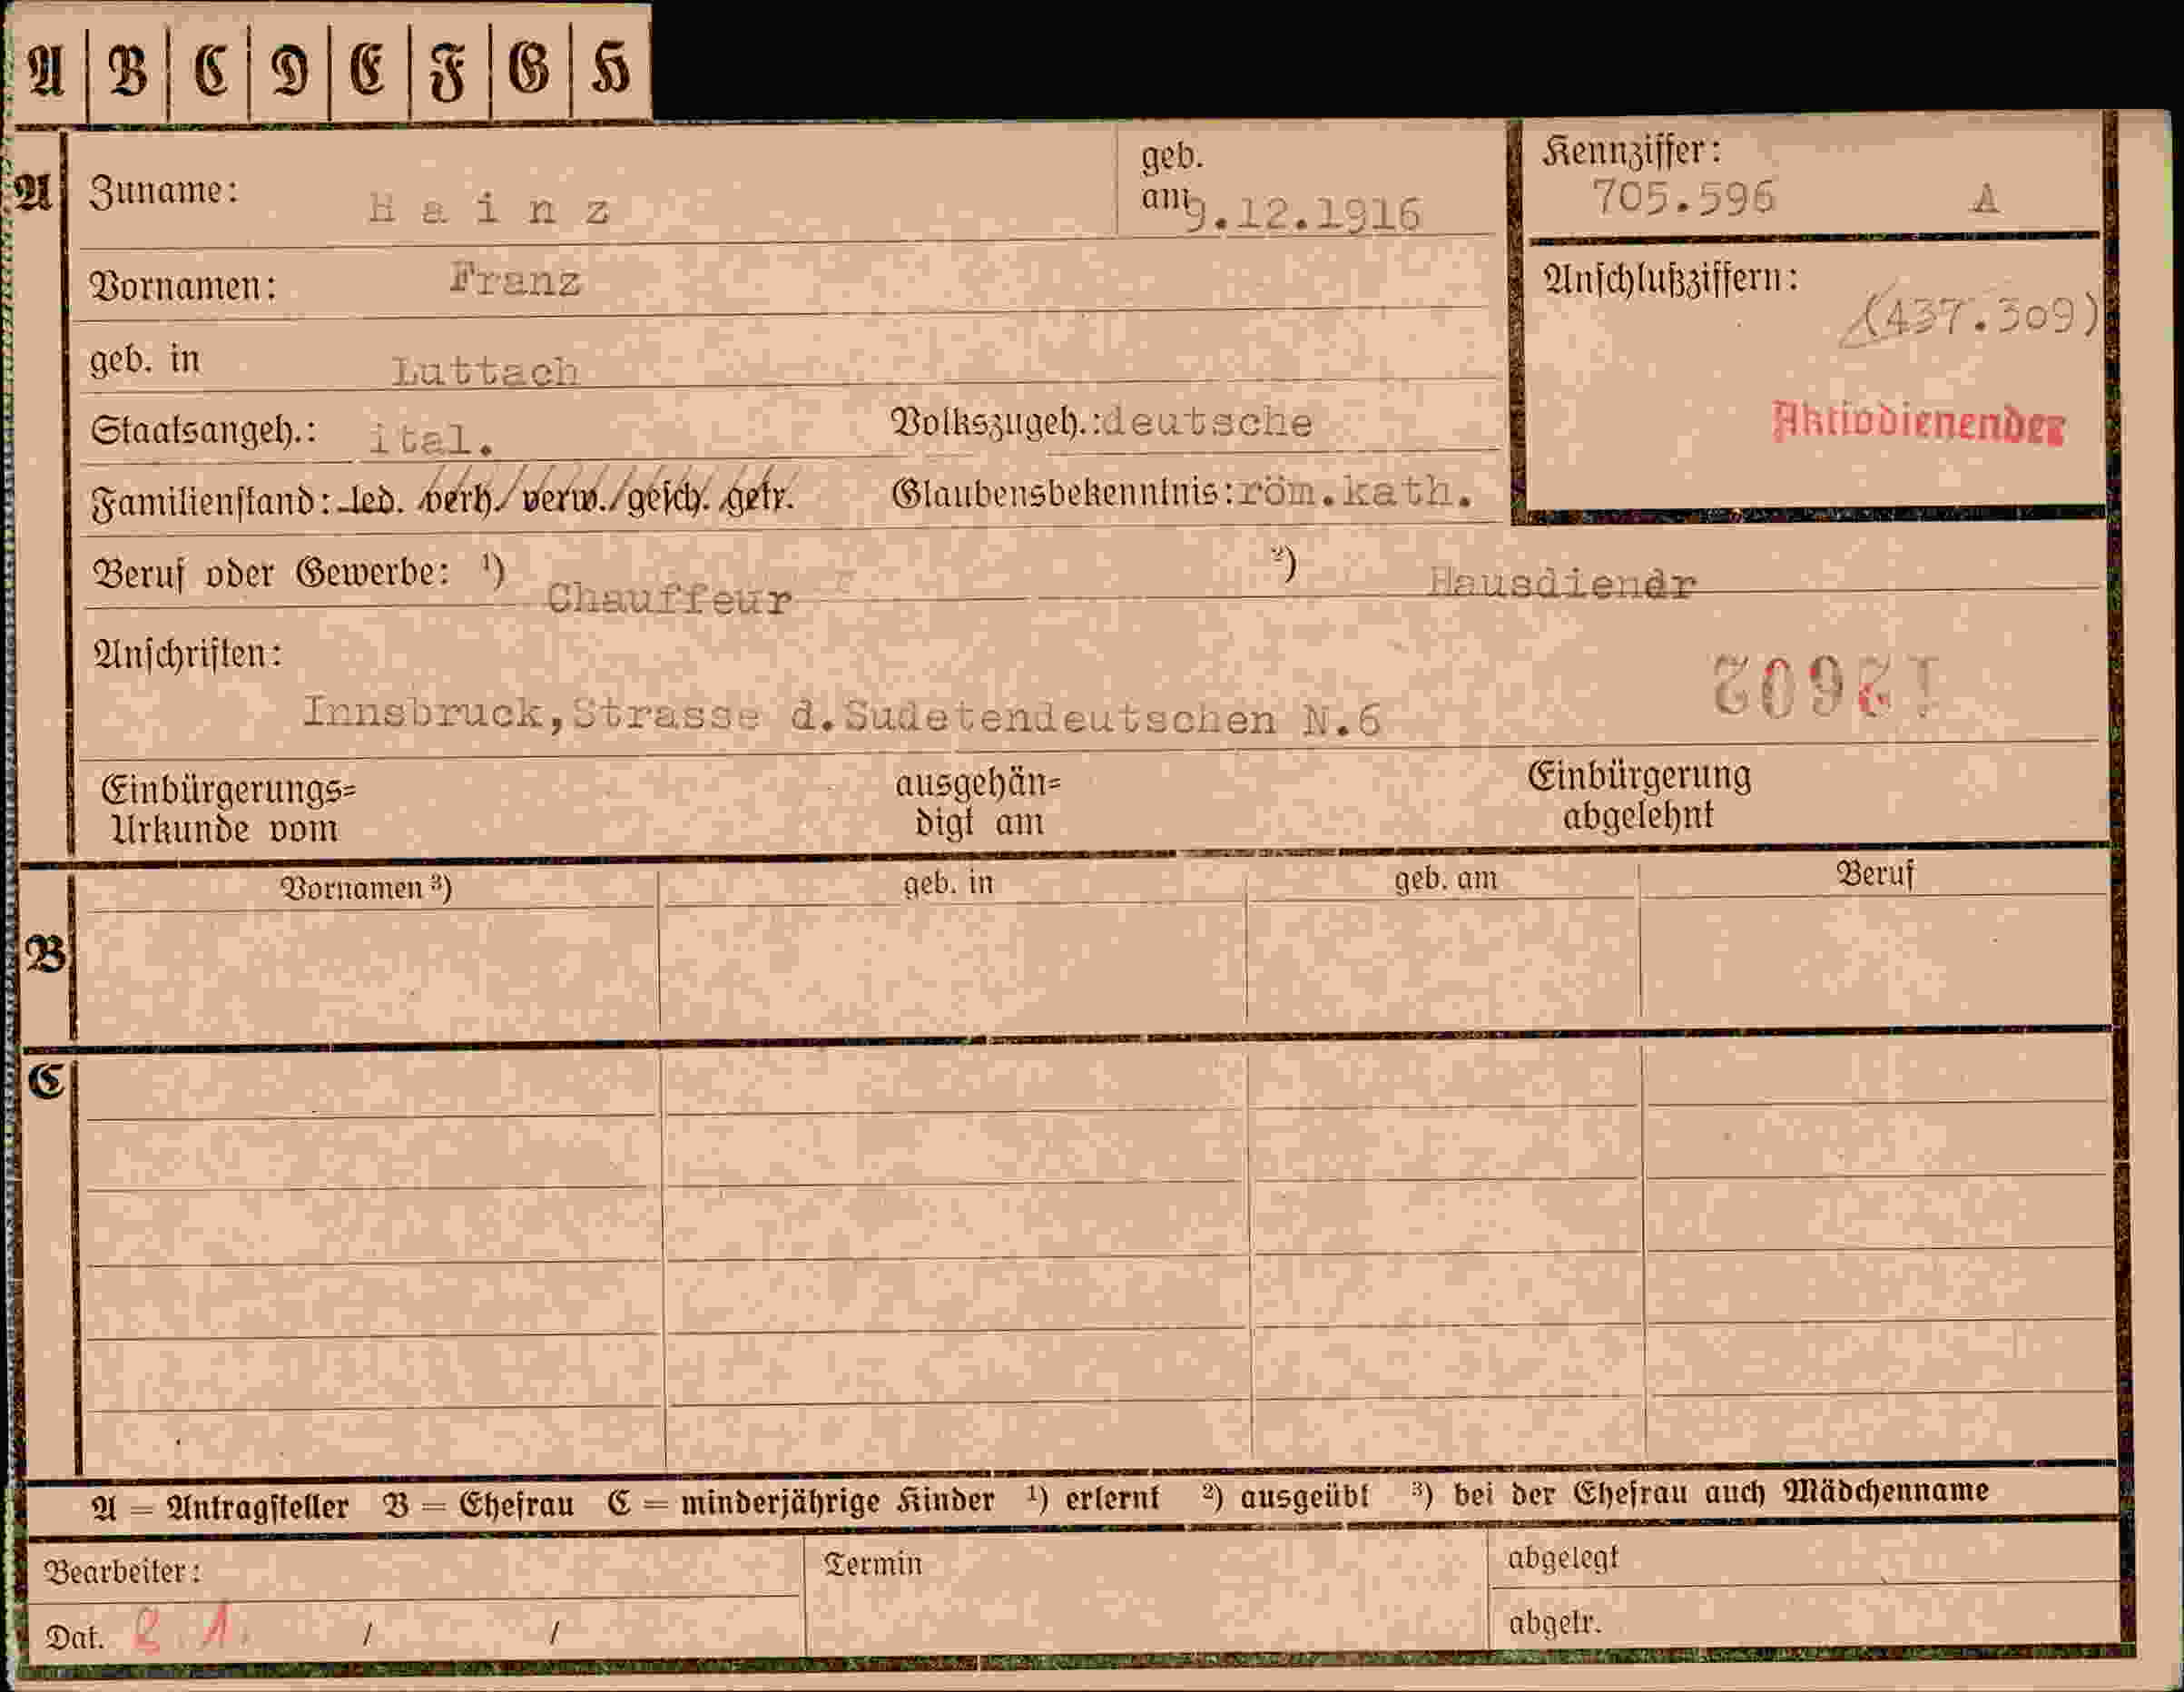 A B C D E F G H
A Zuname: Hainz geb. am 9.12.1916 Kennziffer: 705.596 A
Vornamen: Franz Anschlußziffern: (437.309)
geb. in Luttach
Staatsangeh.: ital. Volkszugeh.: deutsche Aktivdienender
Familienstand: led. verh./verw./gesch. getr. Glaubensbekenntnis: röm.kath.
Beruf oder Gewerbe: ¹) Chauffeur ²) Hausdiener
Anschriften:
Innsbruck, Strasse d. Sudetendeutschen N.6
Einbürgerungs= ausgehän= Einbürgerung
Urkunde vom digt am abgelehnt
Vornamen ³) geb. in geb. am Beruf
B
C
A = Antragsteller B = Ehefrau C = minderjährige Kinder ¹) erlernt ²) ausgeübt ³) bei der Ehefrau auch Mädchenname
Bearbeiter: Termin abgelegt
Dat. / / abgetr.